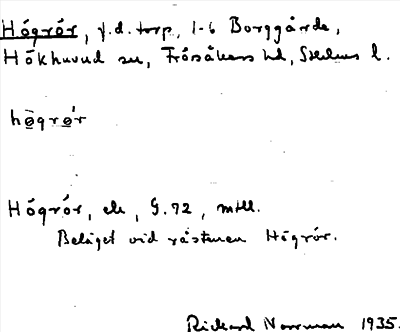 Högrör, f.d. torp, 1-6 Borggårde,
Hökhuvud sn, Frösåkers hd, Sthlms l.
högrör
Högrör, ek, G.72, mtll.
Beläget vid råstenen Högrör.
Rickard Norrman 1935.